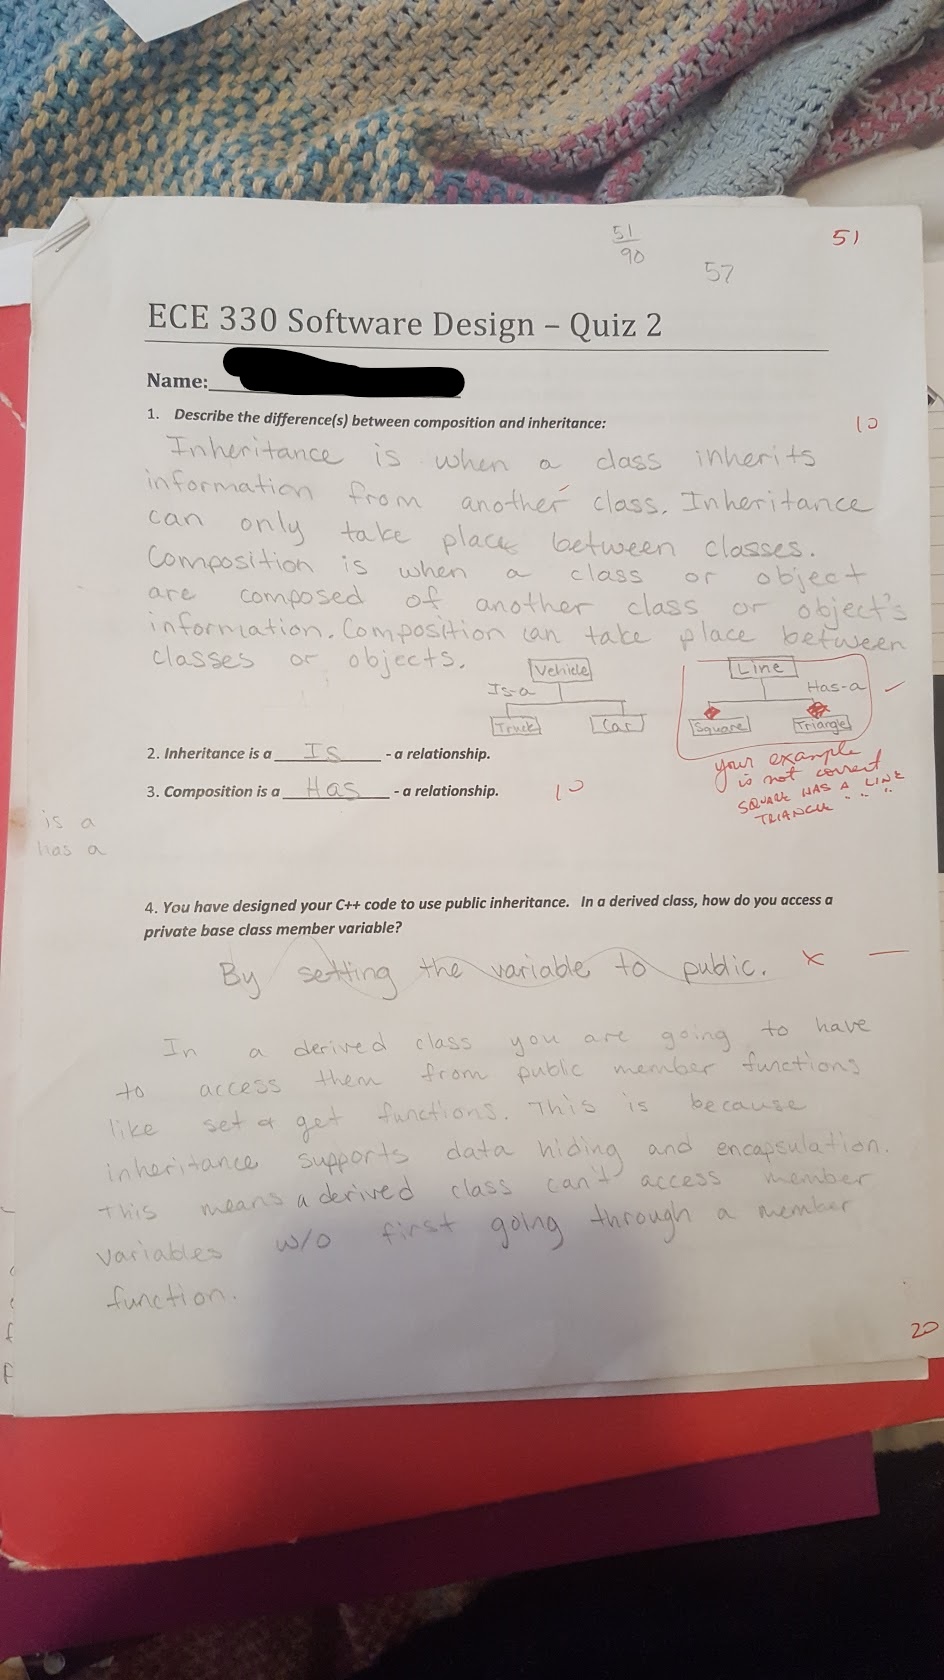 51
90
57
51
ECE 330 Software Design – Quiz 2
Name:
1. Describe the difference(s) between composition and inheritance:
10
Inheritance is when a class inherits
information from another class. Inheritance
can only take place between classes.
Composition is when a class or object
are composed of another class or object's
information. Composition can take place between
classes or objects.
Vehicle
Is-a
Truck
Car
Line
Has-a
Square
Triangle
your example
is not correct
SQUARE HAS A LINE
TRIANGLE " " "
2. Inheritance is a IS - a relationship.
3. Composition is a Has - a relationship.
10
is a
has a
4. You have designed your C++ code to use public inheritance. In a derived class, how do you access a
private base class member variable?
By setting the variable to public. x —
In a derived class you are going to have
to access them from public member functions
like set & get functions. This is because
inheritance supports data hiding and encapsulation.
This means a derived class can't access member
variables w/o first going through a member
function.
20